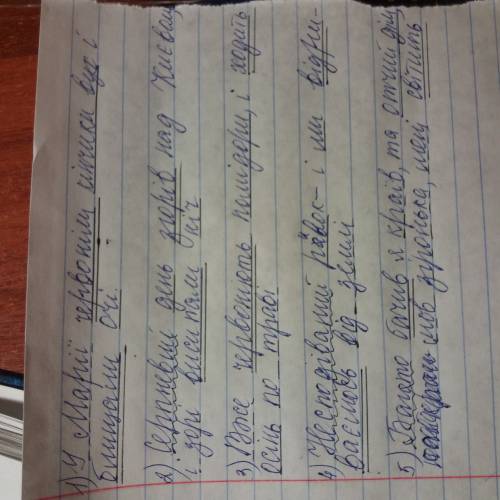 1) У Марії червоніли кінчики вух і
блищали очі.
2) Серпневий день згорів над Києвом
і зорі висипали ніч
3) Вже червоніють помідори, і ходить
осінь по траві
4) Несподіваний ривок – і ми відри-
ваємось від землі
5) Багато бачив я країв, та отчий дім,
мов зіронька, мені світить